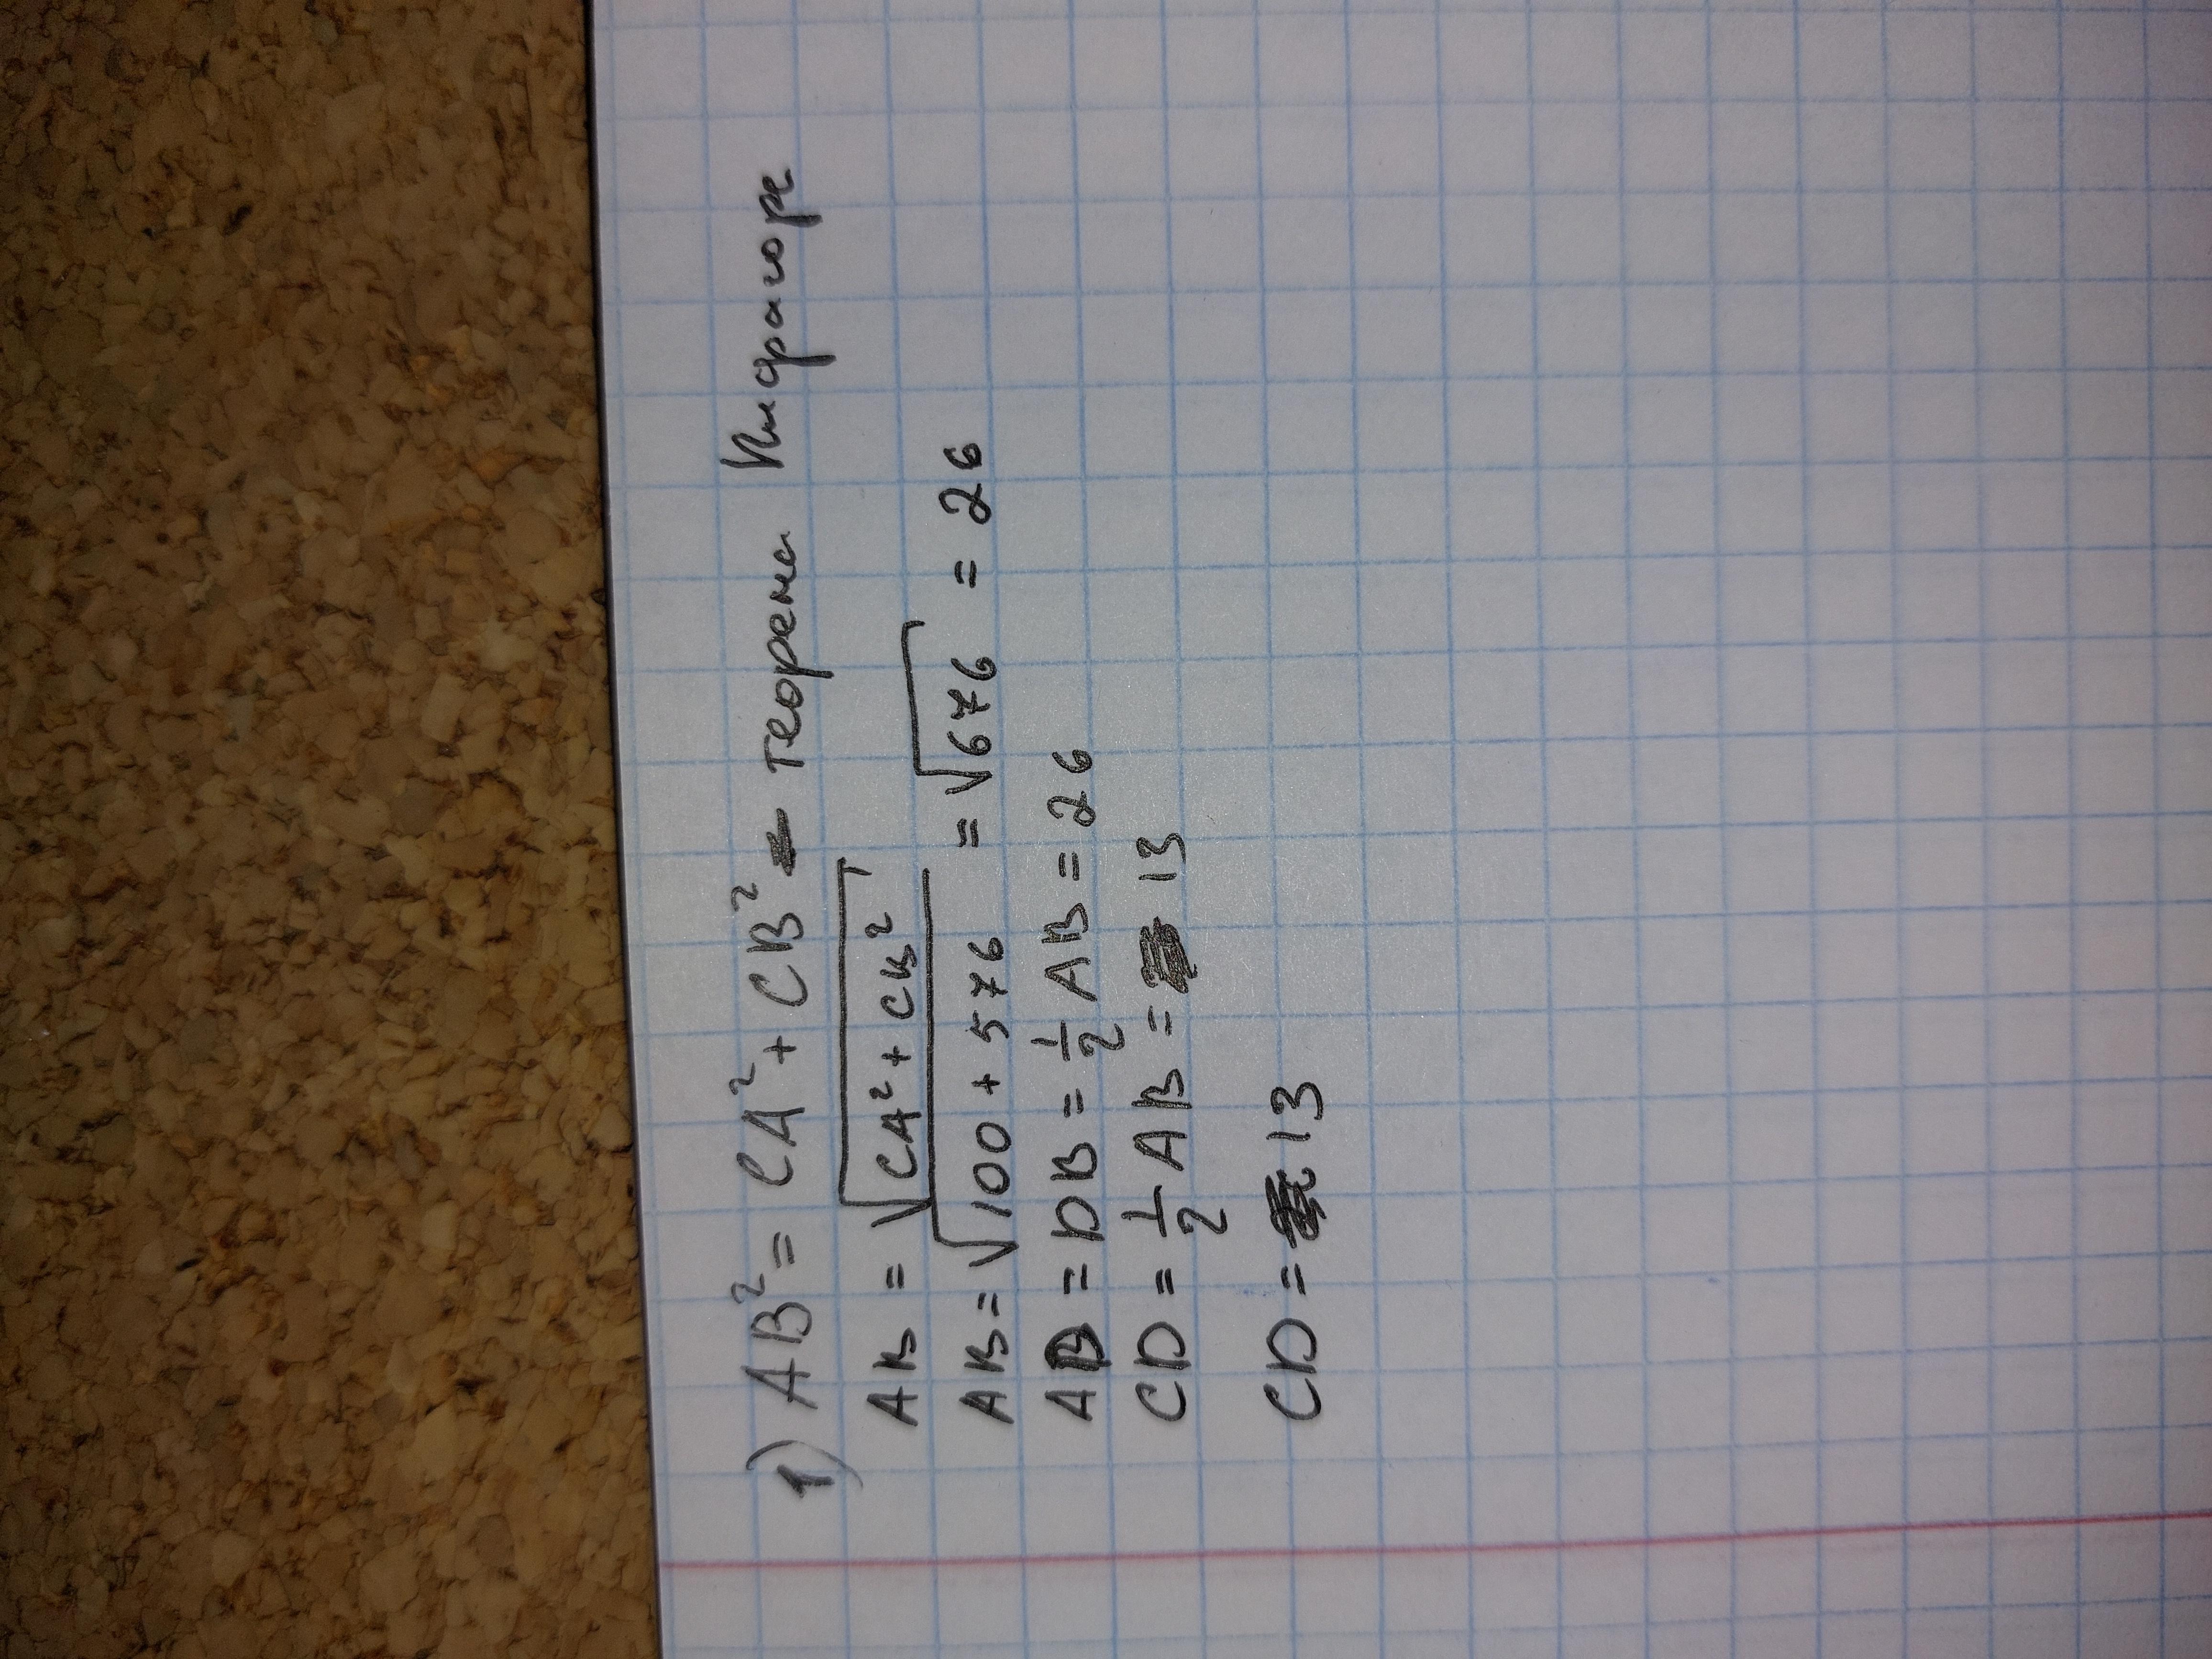 1) AB² = CA² + CB² - теорема Пифагора
AB = √CA² + CB²
AB = √100 + 576 = √676 = 26
AD = DB = 1/2 AB = 26
CD = 1/2 AB = 13
CD = 13